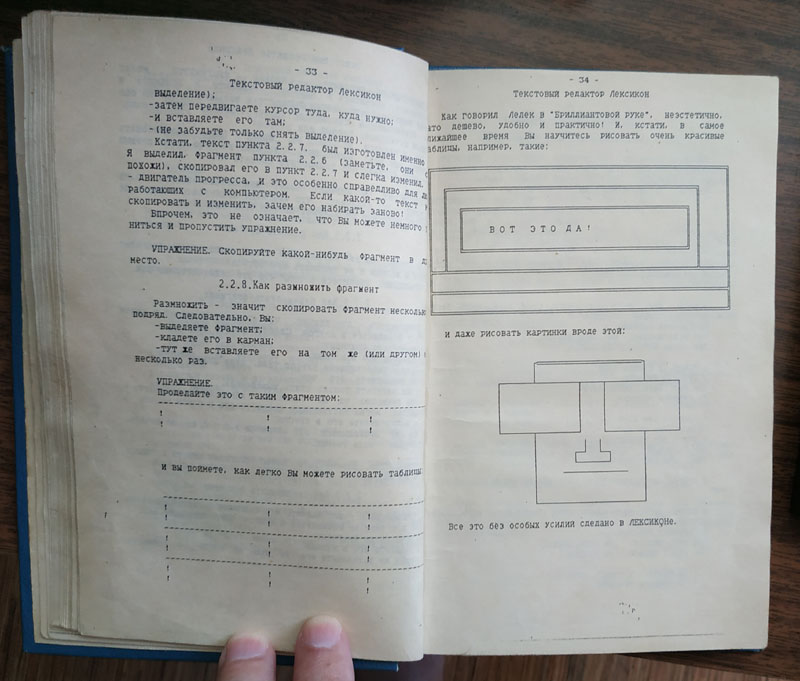 - 33 -
Текстовый редактор Лексикон
выделение);
-затем передвигаете курсор туда, куда нужно;
-и вставляете его там;
-(не забудьте только снять выделение).
Кстати, текст пункта 2.2.7. был изготовлен именно
Я выделил, фрагмент пункта 2.2.6 (заметьте, они
похожи), скопировал его в пункт 2.2.7 и слегка изменил.
- двигатель прогресса, и это особенно справедливо для
работающих с компьютером. Если какой-то текст
скопировать и изменить, зачем его набирать заново!
Впрочем, это не означает, что Вы можете немного
ниться и пропустить упражнение.
УПРАЖНЕНИЕ. Скопируйте какой-нибудь фрагмент в
место.
2.2.8.Как размножить фрагмент
Размножить - значит скопировать фрагмент
подряд. Следовательно, Вы:
-выделяете фрагмент;
-кладете его в карман;
-тут же вставляете его на том же (или другом)
несколько раз.
УПРАЖНЕНИЕ.
Проделайте это с таким фрагментом:
и вы поймете, как легко Вы можете рисовать таблицы:
- 34 -
Текстовый редактор Лексикон
Как говорил Лелек в "Бриллиантовой руке", неэстетично,
дешево, удобно и практично! И, кстати, в самое
время Вы научитесь рисовать очень красивые
например, такие:
ВОТ ЭТО ДА!
и даже рисовать картинки вроде этой:
Все это без особых усилий сделано в ЛЕКСИКОНе.